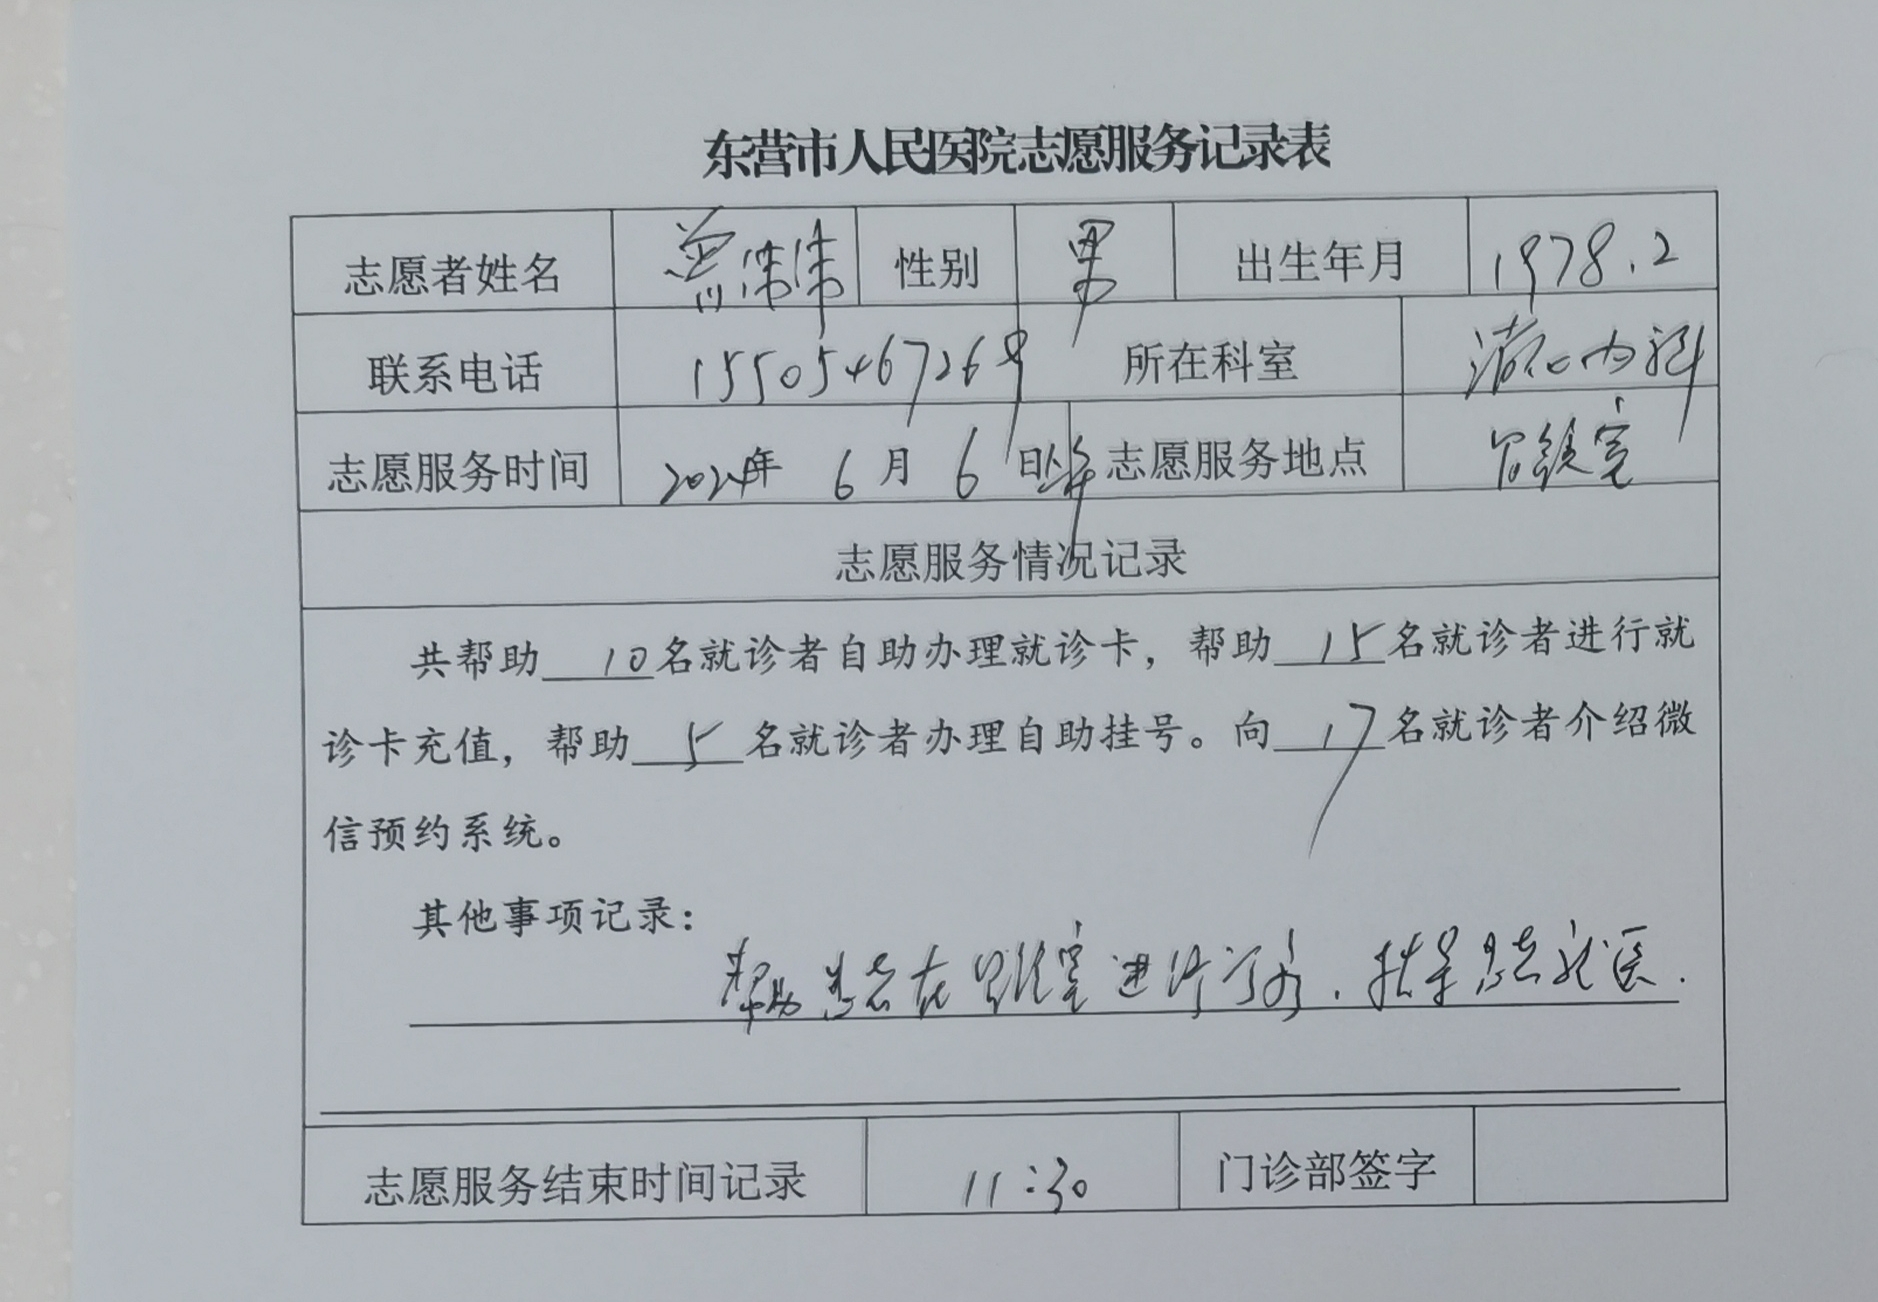 东营市人民医院志愿服务记录表
志愿者姓名 伟伟 性别 男 出生年月 1978.2
联系电话 15505467269 所在科室 消化内科
志愿服务时间 2024年 6月 6日上午 志愿服务地点 胃镜室
志愿服务情况记录
共帮助 10 名就诊者自助办理就诊卡，帮助 15 名就诊者进行就
诊卡充值，帮助 5 名就诊者办理自助挂号。向 17 名就诊者介绍微
信预约系统。
其他事项记录：
帮助患者在胃镜室进行诊，指导患者就医.
志愿服务结束时间记录 11:30 门诊部签字